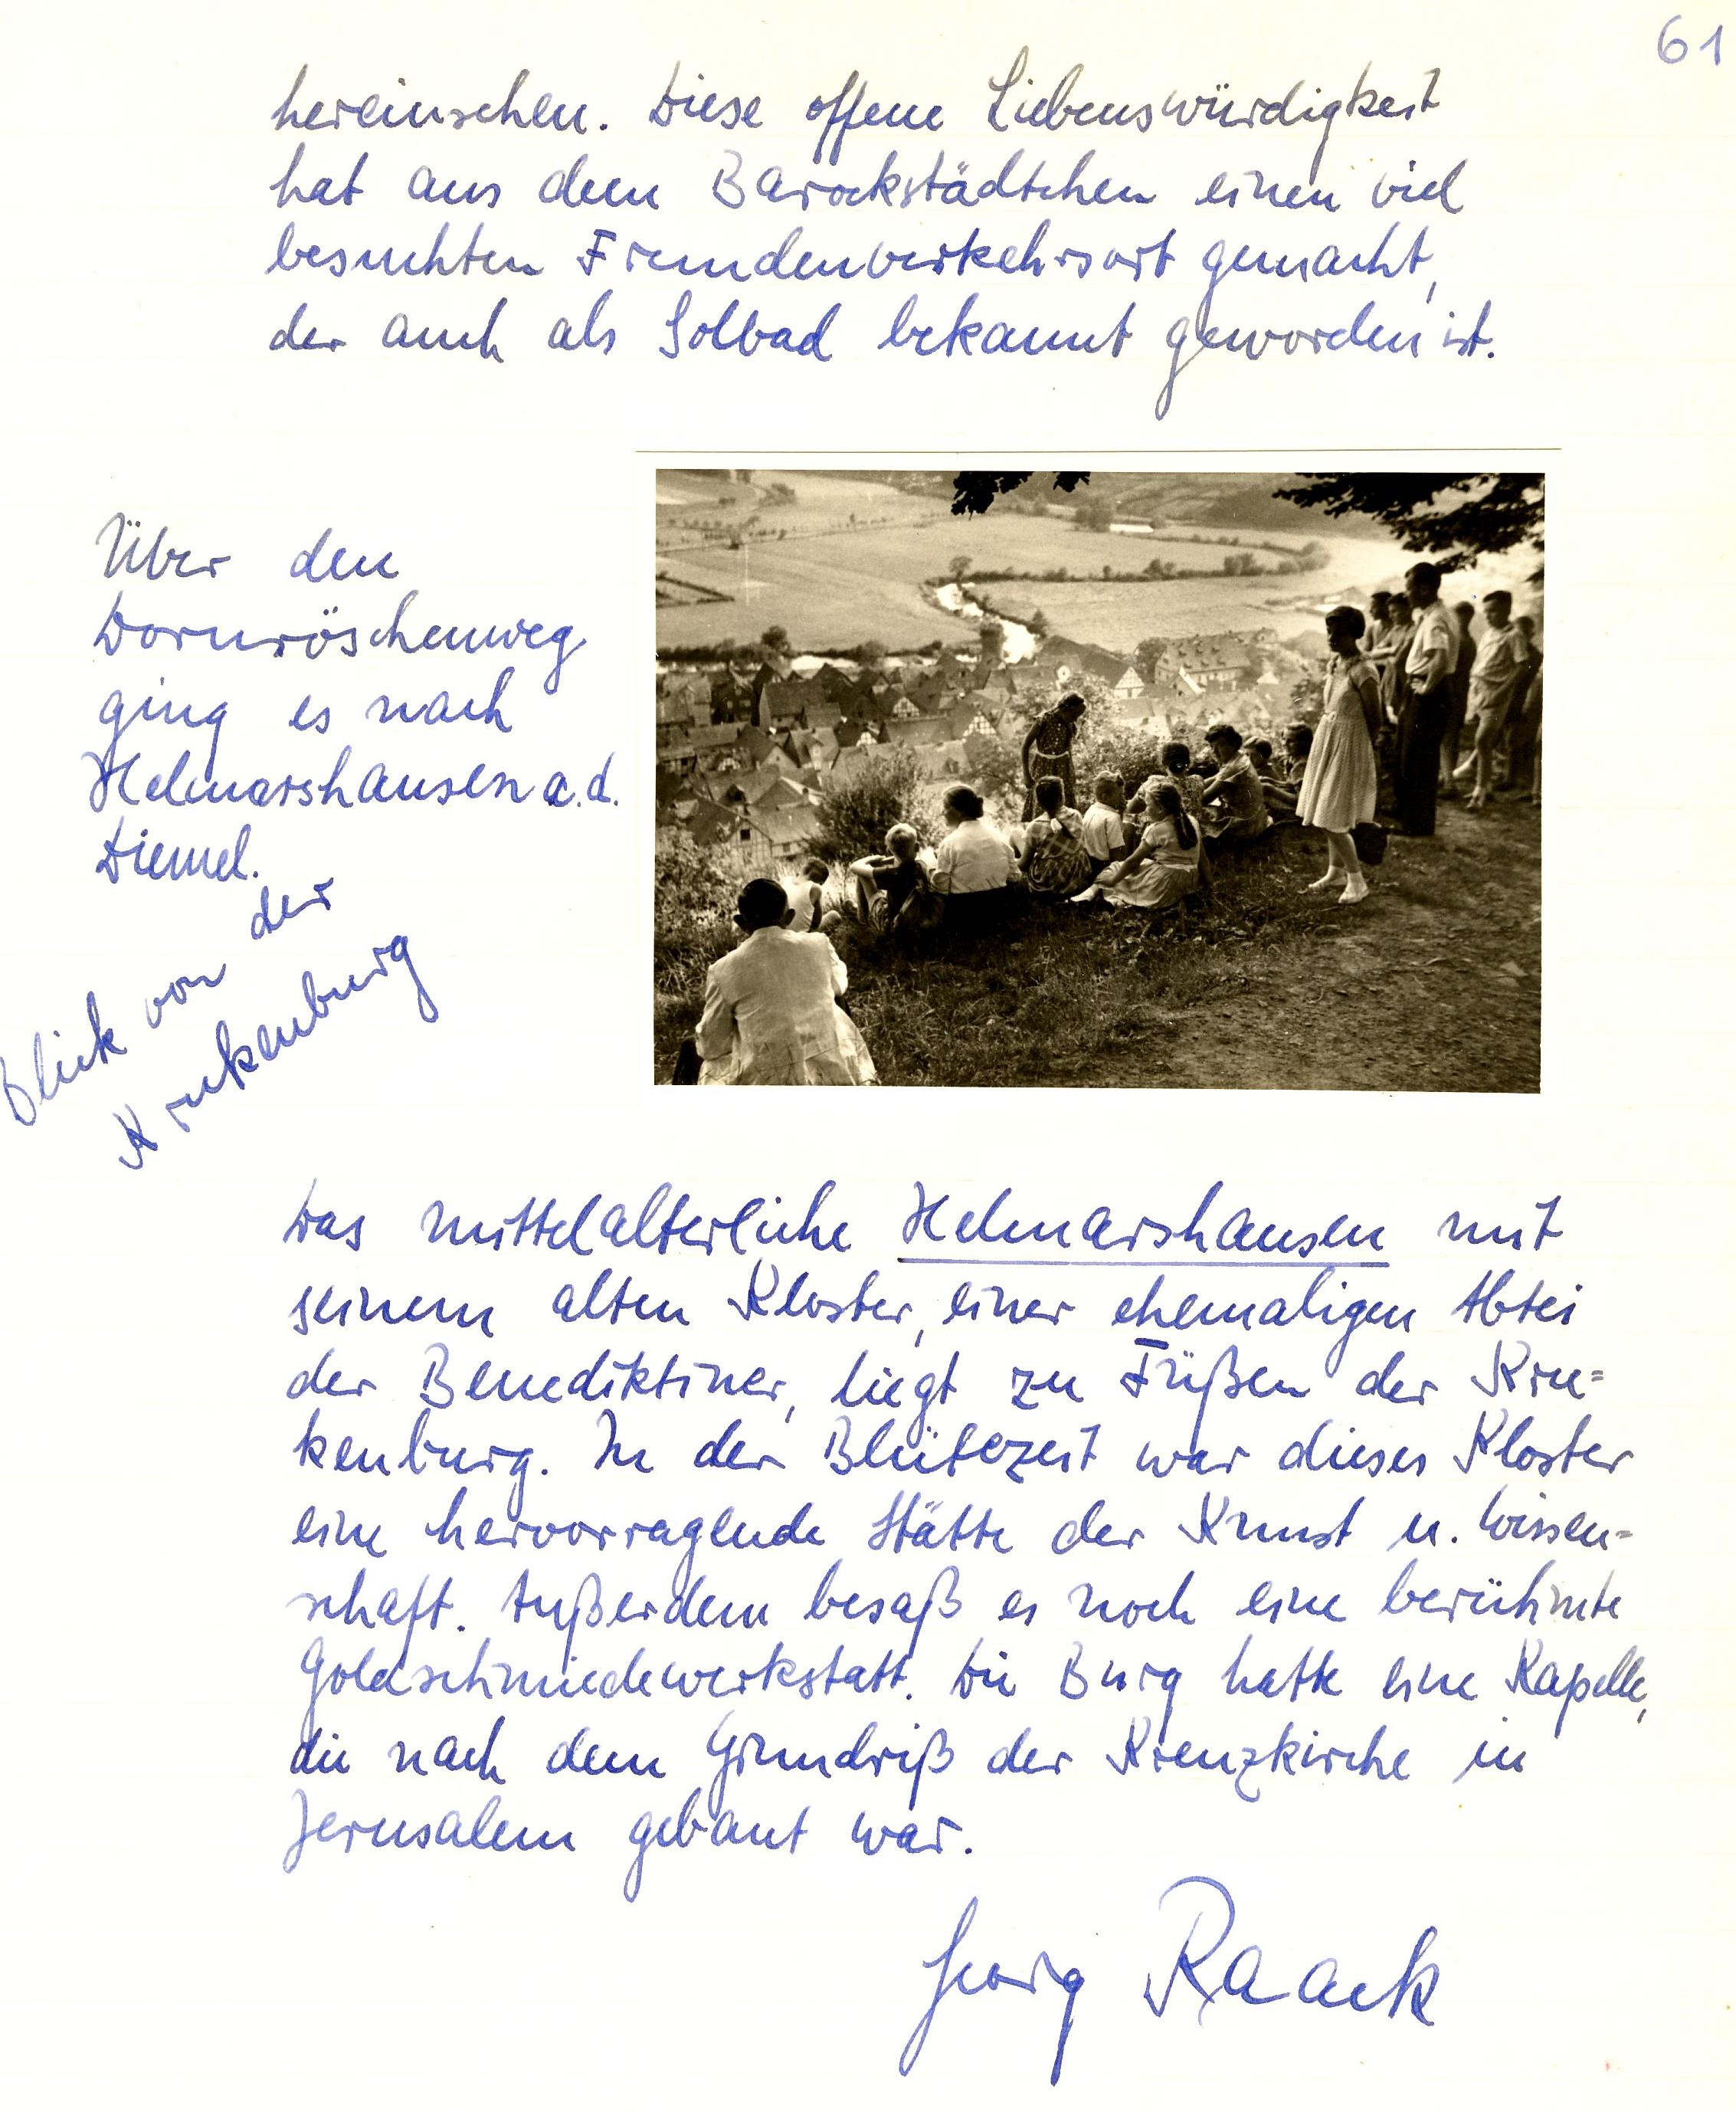 61
hereinsehen. Diese offene Liebenswürdigkeit
hat aus dem Barockstädtchen einen viel
besuchten Fremdenverkehrsort gemacht,
der auch als Solbad bekannt geworden ist.
Über den
Dornröschenweg
ging es nach
Helmarshausen a.d.
Diemel.
Blick von der
Krukenburg
Das mittelalterliche Helmarshausen mit
seinem alten Kloster, einer ehemaligen Abtei
der Benediktiner, liegt zu Füßen der Kru=
kenburg. In der Blütezeit war dieses Kloster
eine hervorragende Stätte der Kunst u. Wissen=
schaft. Außerdem besaß es noch eine berühmte
Goldschmiedewerkstatt. Die Burg hatte eine Kapelle,
die nach dem Grundriß der Kreuzkirche in
Jerusalem gebaut war.
Georg Raack